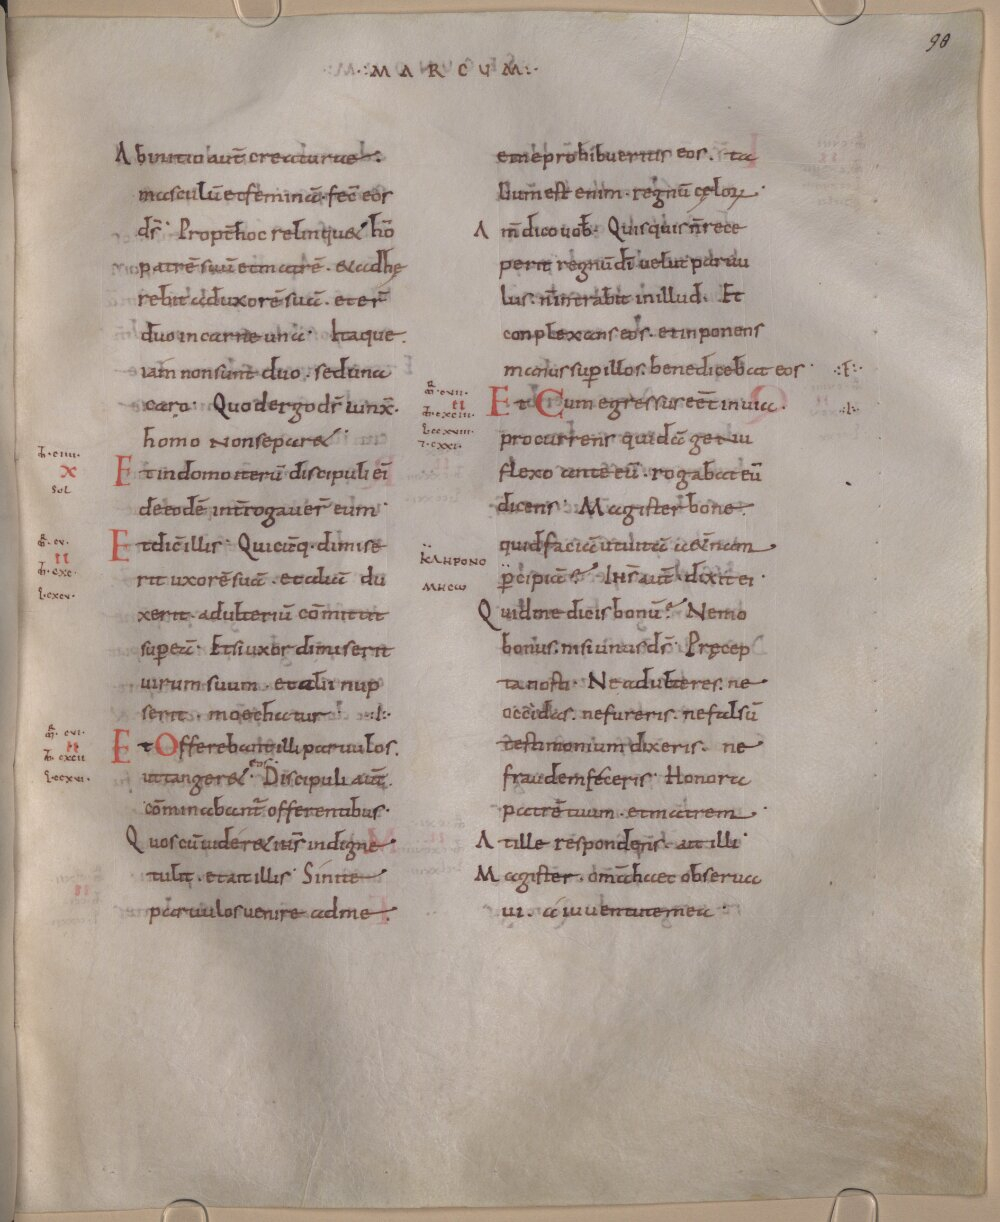 98
·:MARCUM:·
Ab initio aut̄ creaturae·
masculū et feminā· fec̄ eos
ds̄· Propt̄ hoc relinquet hō
patrē suū et matrē· et adhę
rebit ad uxorē suā· et er̄
duo in carne una· Itaque·
iam non sunt duo· sed una
caro· Quod ergo ds̄ iunx̄·
homo non separet·
Et in domo iterū discipuli ei
de eodē int̄rogaver̄ eum·
Et dic̄ illis· Quicūq· dimise
rit uxorē suā· et aliā du
xerit· adulteriū cōmittit
sup eā· Et si uxor dimiserit
uirum suum· et alii nup
serit· moechatur· ·:I:·
Et Offerebant illi paruulos·
ut tangeret eos· Discipuli aut̄·
cōminabant̄ offerentibus·
Quos cū uideret ih̄s indigne
tulit· et ait illis· Sinite
paruulos uenire ad me·
et ne prohibueritis eos· ta
liūm est enim· regnū cęloꝝ·
Am̄ dico uob̄· Quisquis n̄ rece
perit regnū dī uelut paruu
lus· n̄ intrabit in illud· Et
conplexans eos· et inponens
manus sup illos· benedicebat eos· ·:F:·
Et Cum egressus eēt in uia· ·:I:·
procurrens quidā genu
flexo ante eū· rogabat eū
dicens· Magister bone·
quid faciā ut uitā aet̄nam
p̄cipiā· Ihs̄ aut̄· dixit ei·
Quid me dicis bonū· Nemo
bonus· nisi unus ds̄· Pręcep
ta nosti· Ne adulteres· ne
occidas· ne fureris· ne falsū
testimonium dixeris· ne
fraudem feceris· Honora
patrē tuum· et matrem·
At ille respondens· ait illi·
Magister· om̄a haec obserua
ui· a iuuentute mea·
X
SOL
II
II
II
ΚΛΗΡΟΝΟ
ΜΗCω